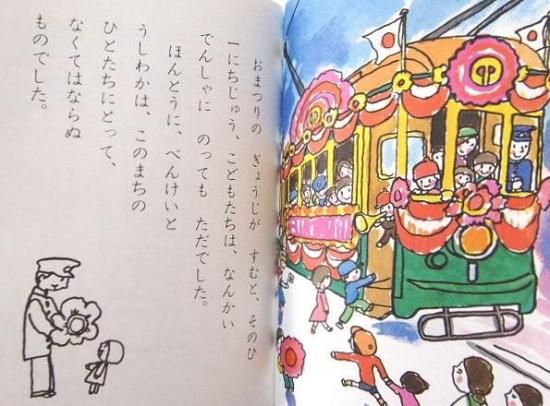 おまつりの ぎょうじが すむと、そのひ
一にちじゅう、こどもたちは、なんかい
でんしゃに のっても ただでした。
ほんとうに、べんけいと
うしわかは、このまちの
ひとたちにとって、
なくてはならぬ
ものでした。